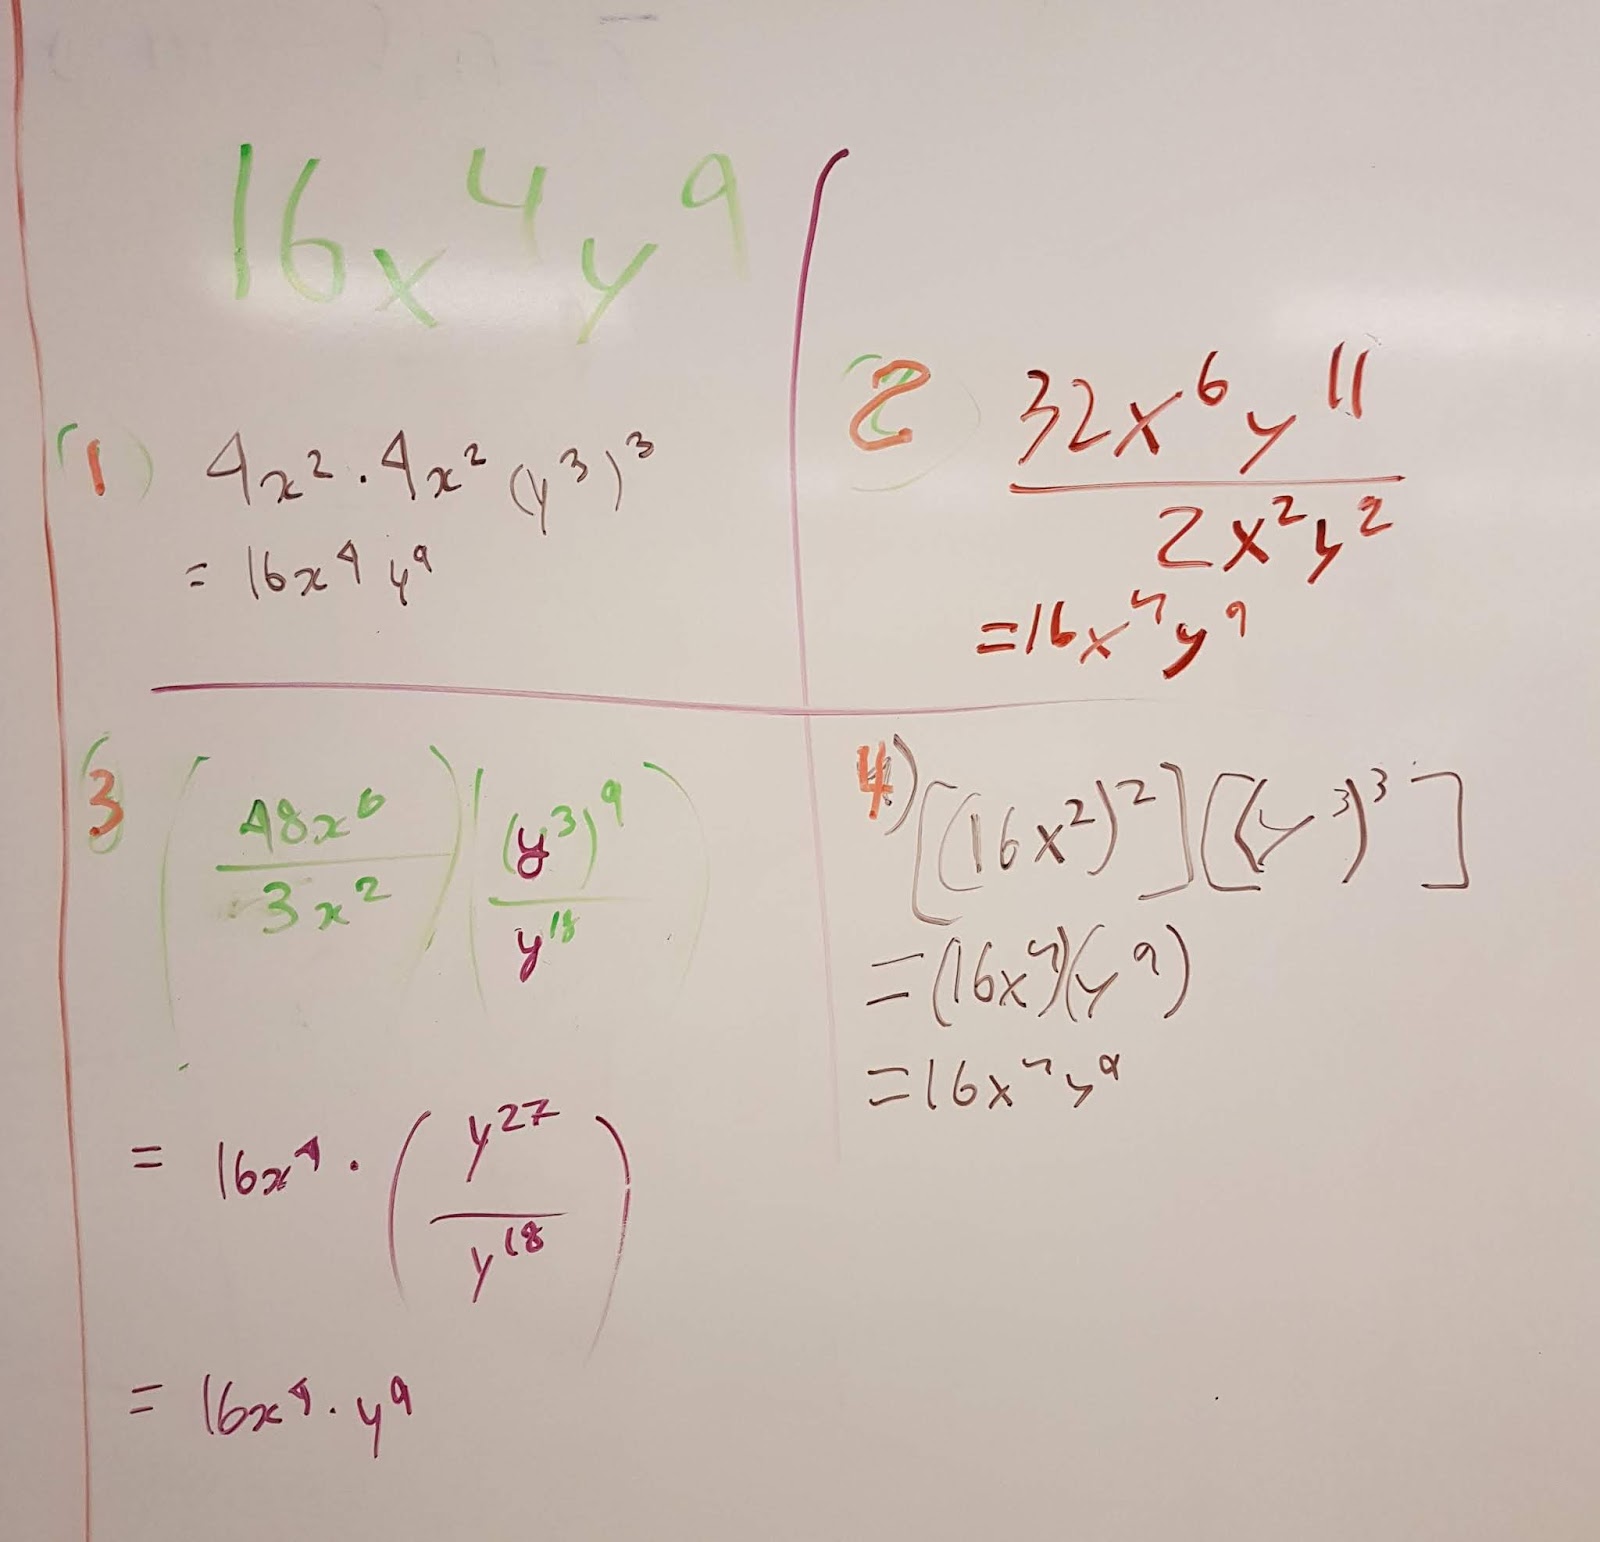 16x⁴y⁹
(1) 4x² · 4x² (y³)³
= 16x⁴y⁹
2) 32x⁶y¹¹
2x²y²
=16x⁴y⁹
(3 (48x⁶ / 3x²) ((y³)⁹ / y¹⁸)
= 16x⁴ · (y²⁷ / y¹⁸)
= 16x⁴ · y⁹
4) [(16x²)²][(y³)³]
=(16x⁴)(y⁹)
=16x⁴y⁹